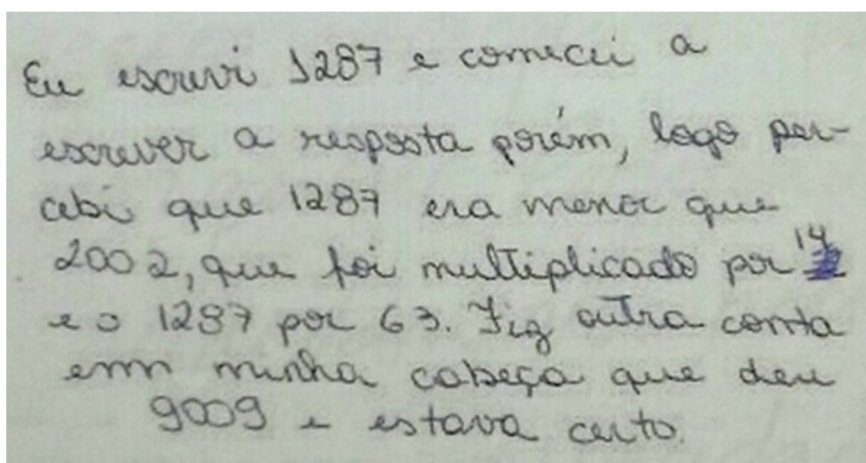 Eu escrevi 1287 e comecei a
escrever a resposta porém, logo per-
cebi que 1287 era menor que
2002, que foi multiplicado por 14
e o 1287 por 63. Fiz outra conta
em minha cabeça que deu
9009 e estava certo.